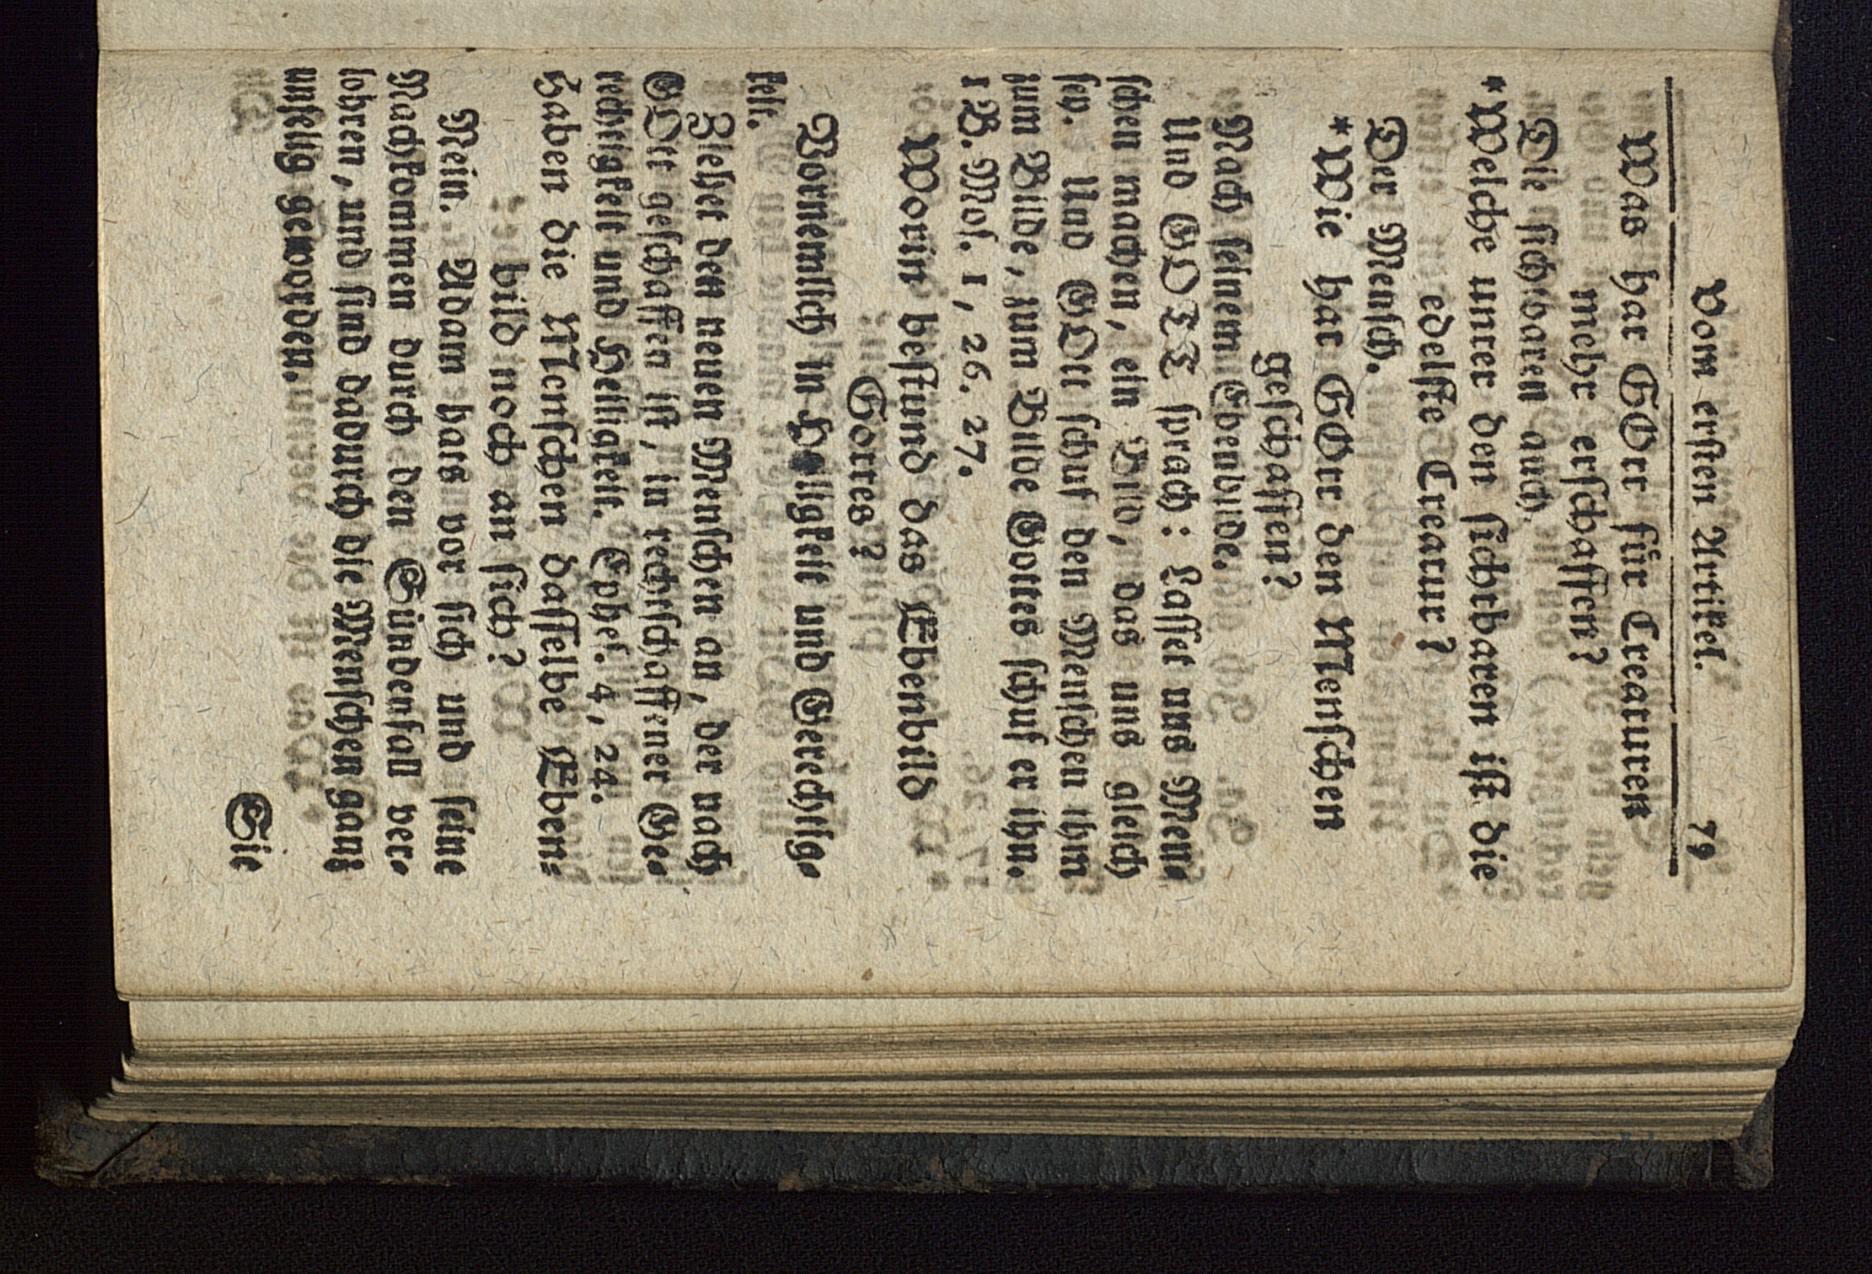 Vom erſten Artikel. 79
Was hat GOtt für Creaturen
mehr erſchaffen?
Die ſichtbaren auch.
*Welche unter den ſichtbaren iſt die
edelſte Creatur?
Der Menſch.
*Wie hat GOtt den Menſchen
geſchaffen?
Nach ſeinem Ebenbilde.
Und GOTT ſprach: Laſſet uns Men-
ſchen machen, ein Bild, das uns gleich
ſey. Und GOtt ſchuf den Menſchen ihm
zum Bilde, zum Bilde Gottes ſchuf er ihn.
1 B. Moſ. 1, 26. 27.
Worin beſtund das Ebenbild
Gottes?
Vornemlich in Heiligkeit und Gerechtig-
keit.
Ziehet den neuen Menſchen an, der nach
GOtt geſchaffen iſt, in rechtſchaffener Ge-
rechtigkeit und Heiligkeit. Epheſ. 4, 24.
Haben die Menſchen daſſelbe Eben-
bild noch an ſich?
Nein. Adam hats vor ſich und ſeine
Nachkommen durch den Sündenfall ver-
lohren, und ſind dadurch die Menſchen ganz
unſelig geworden.
Sie